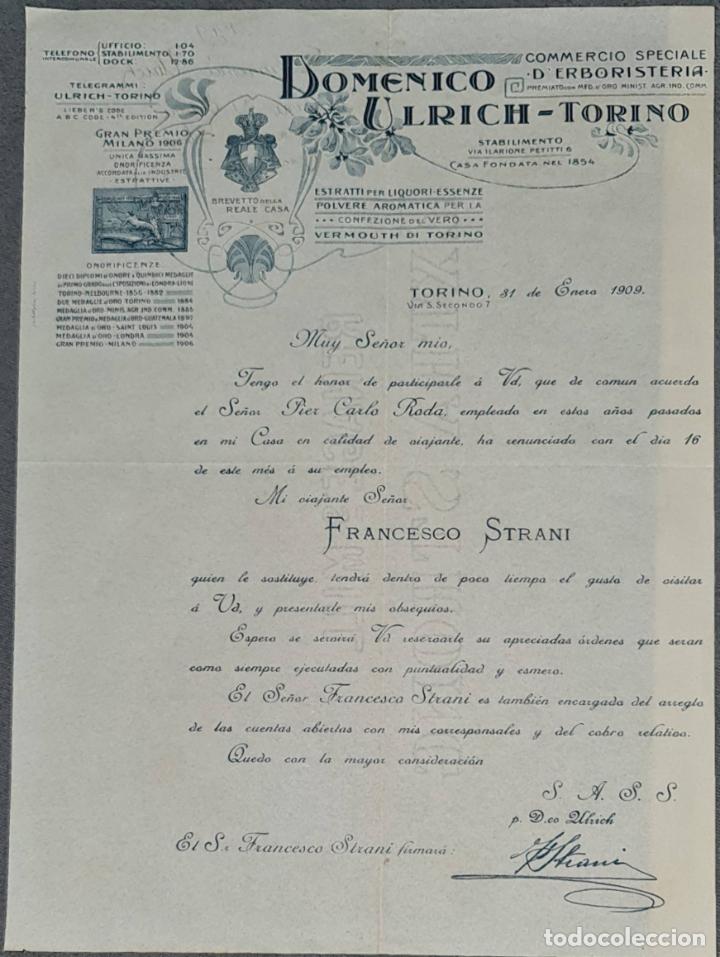 TELEFONO INTERCOMUNALE
UFFICIO: 1·04
STABILIMENTO 1·70
DOCK 12·86
TELEGRAMMI
ULRICH-TORINO
LIEBER'S CODE
A B C CODE-4TH EDITION
GRAN PREMIO
MILANO 1906
UNICA MASSIMA
ONORIFICENZA
ACCORDATA alle INDUSTRIE
ESTRATTIVE
ONORIFICENZE
DIECI DIPLOMI d'ONORE e QUINDICI MEDAGLIE
di PRIMO GRADO alle ESPOSIZIONI di LONDRA-LIONE
TORINO-MELBOURNE-1856-1882
DUE MEDAGLIE d'ORO TORINO 1884
MEDAGLIA d'ORO-MINIS. AGR. IND. COMM. 1885
GRAN PREMIO e MEDAGLIA d'ORO GUATEMALA 1897
MEDAGLIA d'ORO-SAINT LOUIS 1904
MEDAGLIA d'ORO-LONDRA 1904
GRAN PREMIO-MILANO 1906
BREVETTO DELLA
REALE CASA
DOMENICO
ULRICH-TORINO
COMMERCIO SPECIALE
D'ERBORISTERIA
PREMIATO CON MED. D'ORO MINIST. AGR. IND. COMM.
STABILIMENTO
VIA ILARIONE PETITTI 6
CASA FONDATA NEL 1854
ESTRATTI PER LIQUORI-ESSENZE
POLVERE AROMATICA PER LA
CONFEZIONE DEL VERO
VERMOUTH DI TORINO
TORINO, 31 de Enero 1909.
VIA S. SECONDO 7
Muy Señor mio,
Tengo el honor de participarle á Vd, que de comun acuerdo
el Señor Pier Carlo Roda, empleado en estos años pasados
en mi Casa en calidad de viajante, ha renunciado con el dia 16
de este més á su empleo.
Mi viajante Señor
FRANCESCO STRANI
quien le sostituye, tendrá dentro de poco tiempo el gusto de visitar
á Vd, y presentarle mis obsequios.
Espero se servirá Vd reservarle su apreciadas órdenes que seran
como siempre ejecutadas con puntualidad y esmero.
El Señor Francesco Strani es también encargado del arreglo
de las cuentas abiertas con mis corresponsales y del cobro relativo.
Quedo con la mayor consideración
S. A. S. S.
p. D.co Ulrich
El S.r Francesco Strani firmará:
F Strani
todocoleccion
todocoleccion.net